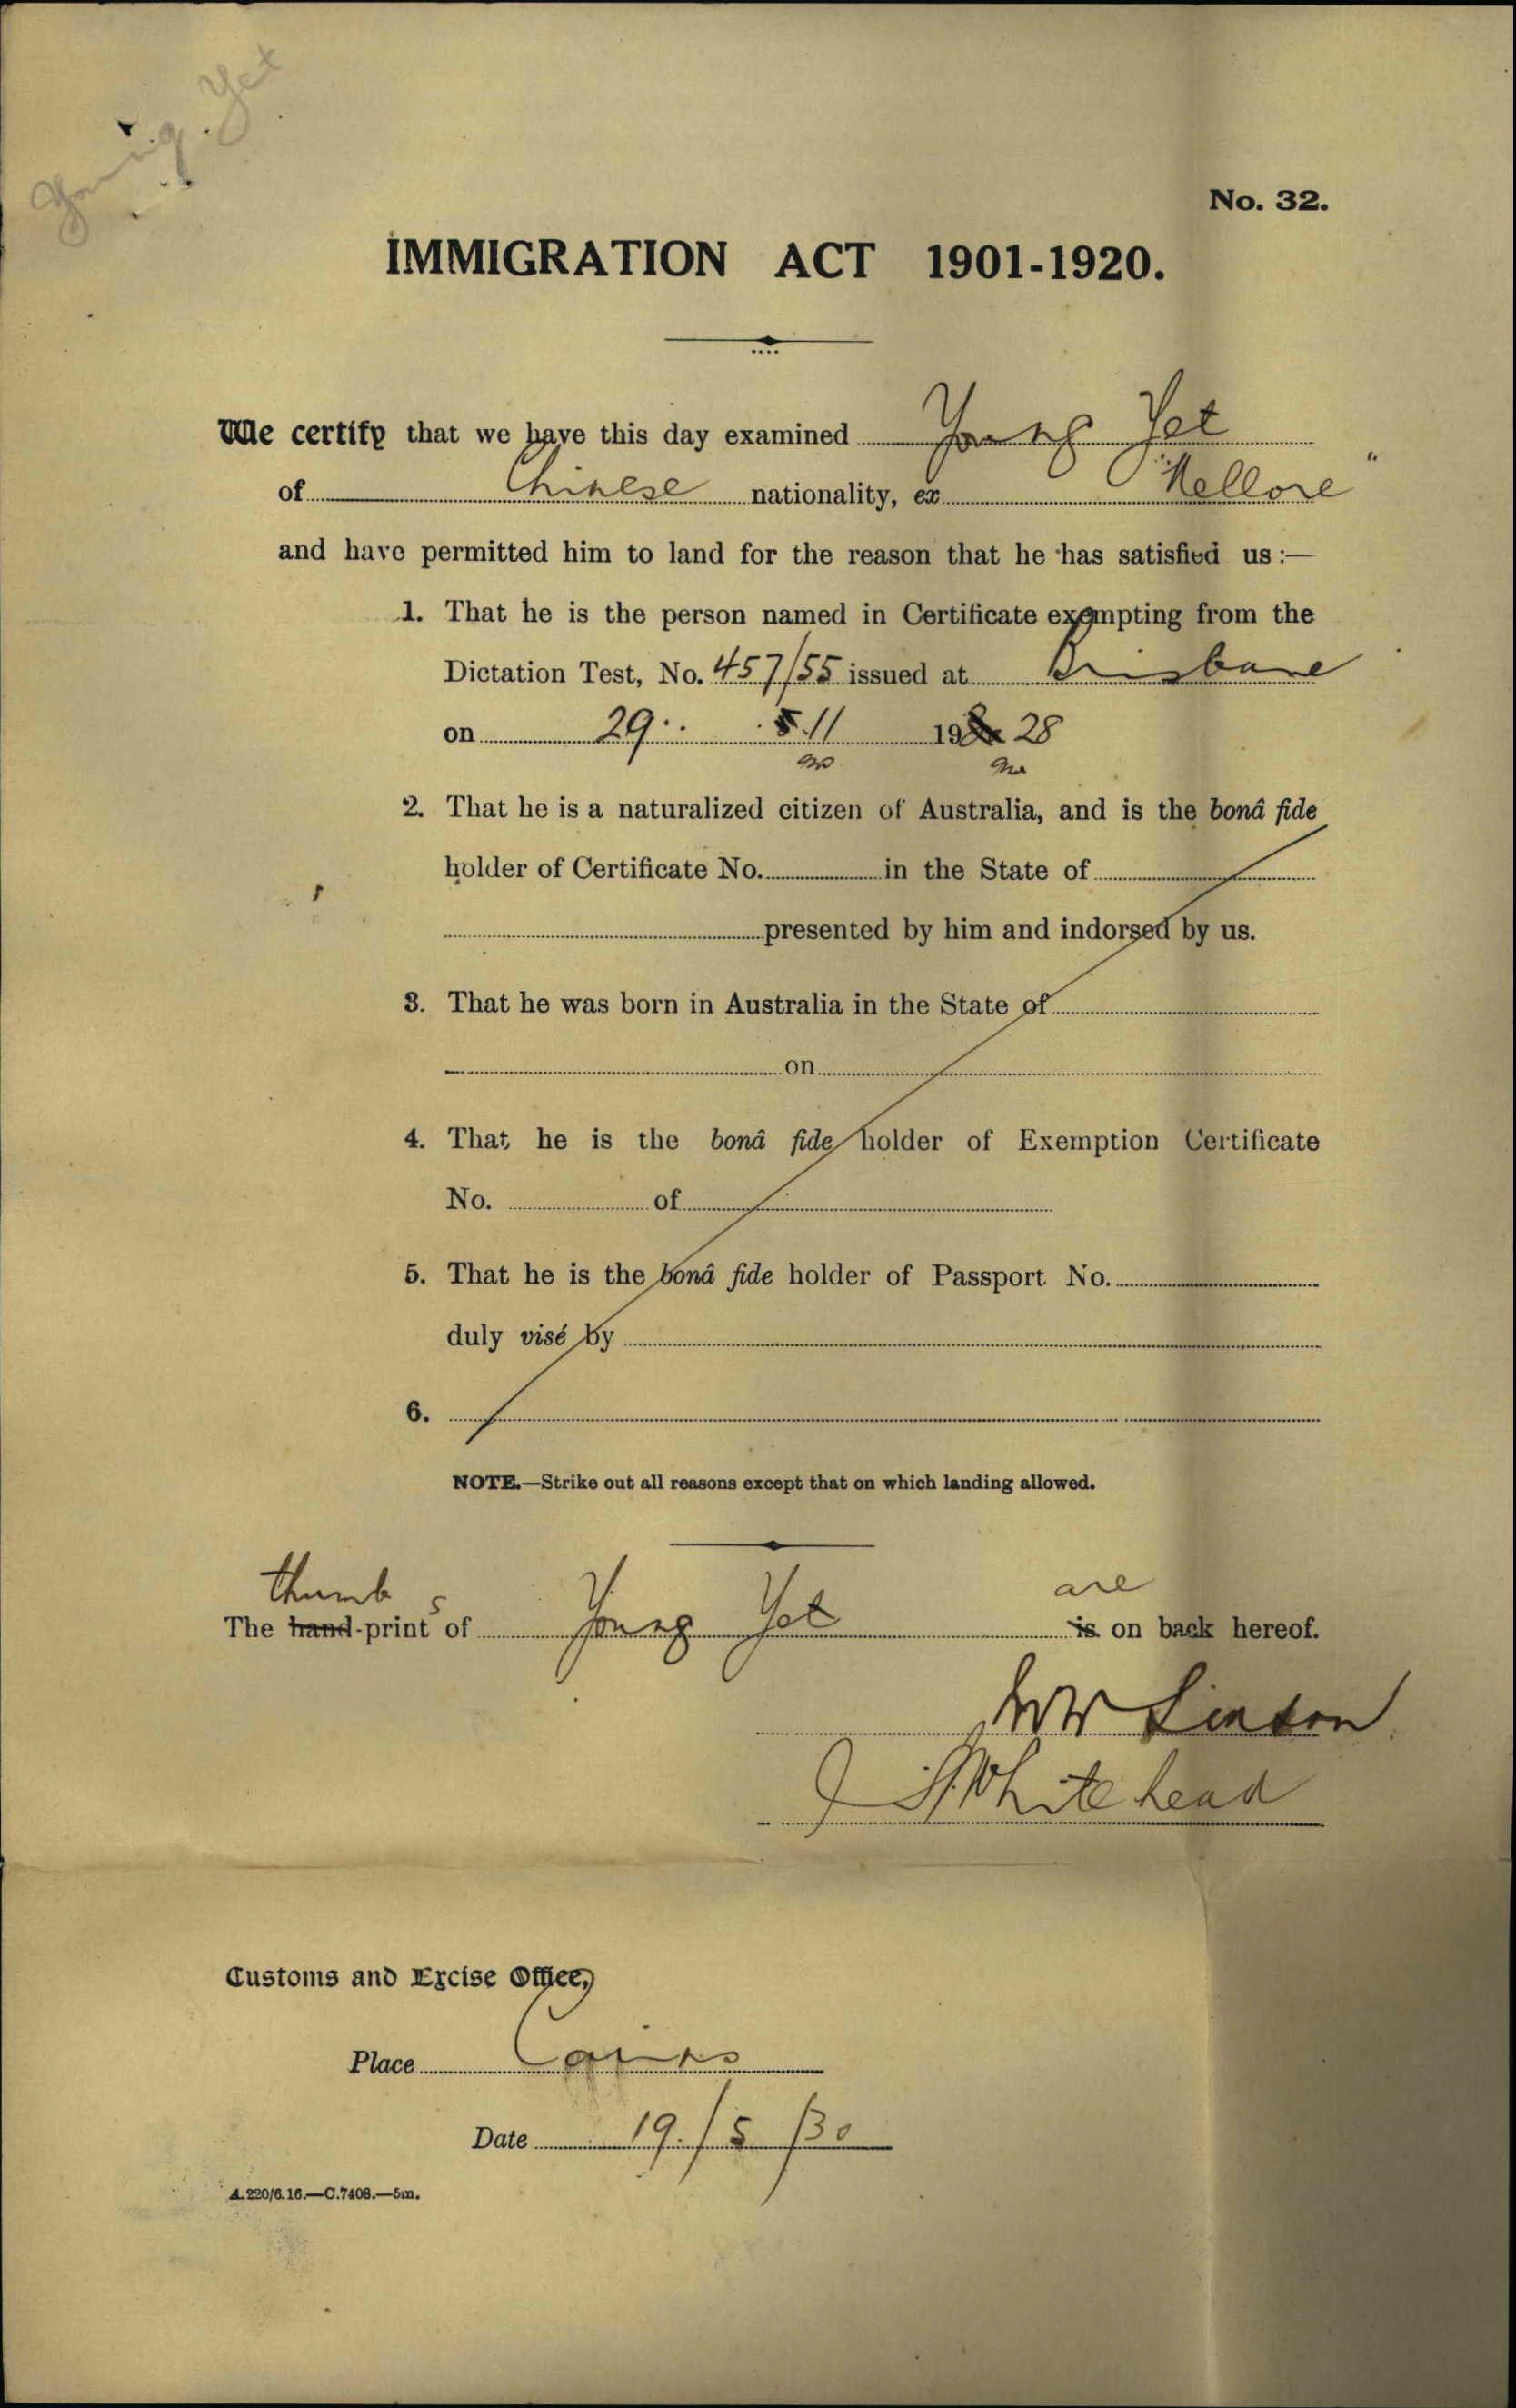 Young Yet
No. 32.
IMMIGRATION ACT 1901-1920.
We certify that we have this day examined Young Yet
of Chinese nationality, ex "Nellore"
and have permitted him to land for the reason that he has satisfied us:—
1. That he is the person named in Certificate exempting from the
Dictation Test, No. 457/55 issued at Brisbane
on 29. 11 19 28
2. That he is a naturalized citizen of Australia, and is the bonâ fide
holder of Certificate No. in the State of
presented by him and indorsed by us.
3. That he was born in Australia in the State of
on
4. That he is the bonâ fide holder of Exemption Certificate
No. of
5. That he is the bonâ fide holder of Passport No.
duly visé by
6.
NOTE.—Strike out all reasons except that on which landing allowed.
thumb s are
The hand-print of Young Yet is on back hereof.
Linton
J S Whitehead
Customs and Excise Office,
Place Cairns
Date 19./5/30
A.220/6.16.—C.7408.—5m.